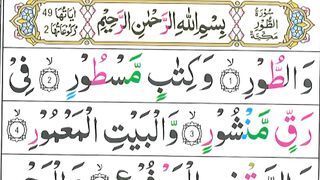 سُوْرَةُ الطُّوْرِ مَكِّيَّةٌ
بِسْمِ اللّٰهِ الرَّحْمٰنِ الرَّحِيْمِ
اٰيَاتُهَا 49
رُكُوْعَاتُهَا 2
وَالطُّوْرِ ۙ﴿1﴾ وَكِتٰبٍ مَّسْطُوْرٍ ۙ﴿2﴾ فِىْ
رَقٍّ مَّنْشُوْرٍ ۙ﴿3﴾ وَّالْبَيْتِ الْمَعْمُوْرِ ۙ﴿4﴾